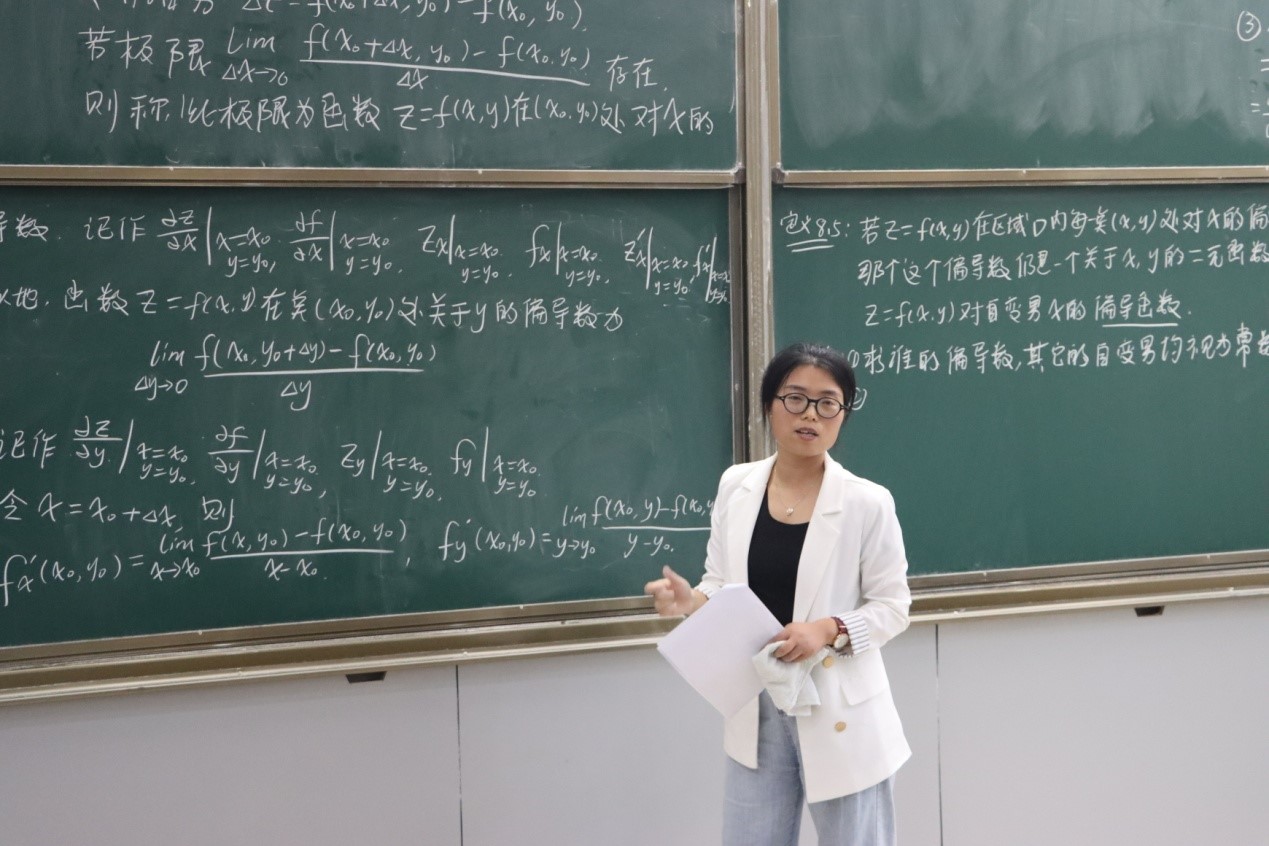 Δz = f(x₀+Δx, y₀) - f(x₀, y₀)
若极限 lim Δx→0 f(x₀+Δx, y₀) - f(x₀, y₀) / Δx 存在.
则称此极限为函数 z=f(x,y)在(x₀,y₀)处对x的
导数. 记作 ∂z/∂x|x=x₀ y=y₀, ∂f/∂x|x=x₀ y=y₀, Zx|x=x₀ y=y₀, fx|x=x₀ y=y₀, Z'x|x=x₀ y=y₀, f'x|
地. 函数 z=f(x,y)在点(x₀,y₀)处关于y的偏导数为
lim Δy→0 f(x₀, y₀+Δy) - f(x₀, y₀) / Δy
记作 ∂z/∂y|x=x₀ y=y₀, ∂f/∂y|x=x₀ y=y₀, Zy|x=x₀ y=y₀, fy|x=x₀ y=y₀
令 x=x₀+Δx, 则
fx'(x₀,y₀) = lim x→x₀ f(x,y₀) - f(x₀,y₀) / x-x₀, fy'(x₀,y₀) = lim y→y₀ f(x₀,y) - f(x₀,y / y-y₀.
③
=
=
定义8.5: 若z=f(x,y)在区域D内每点(x,y)处对x的偏
那个这个偏导数仍是一个关于x,y的二元函数
z=f(x,y)对自变量x的偏导函数.
①求谁的偏导数,其它的自变量均视为常数
②